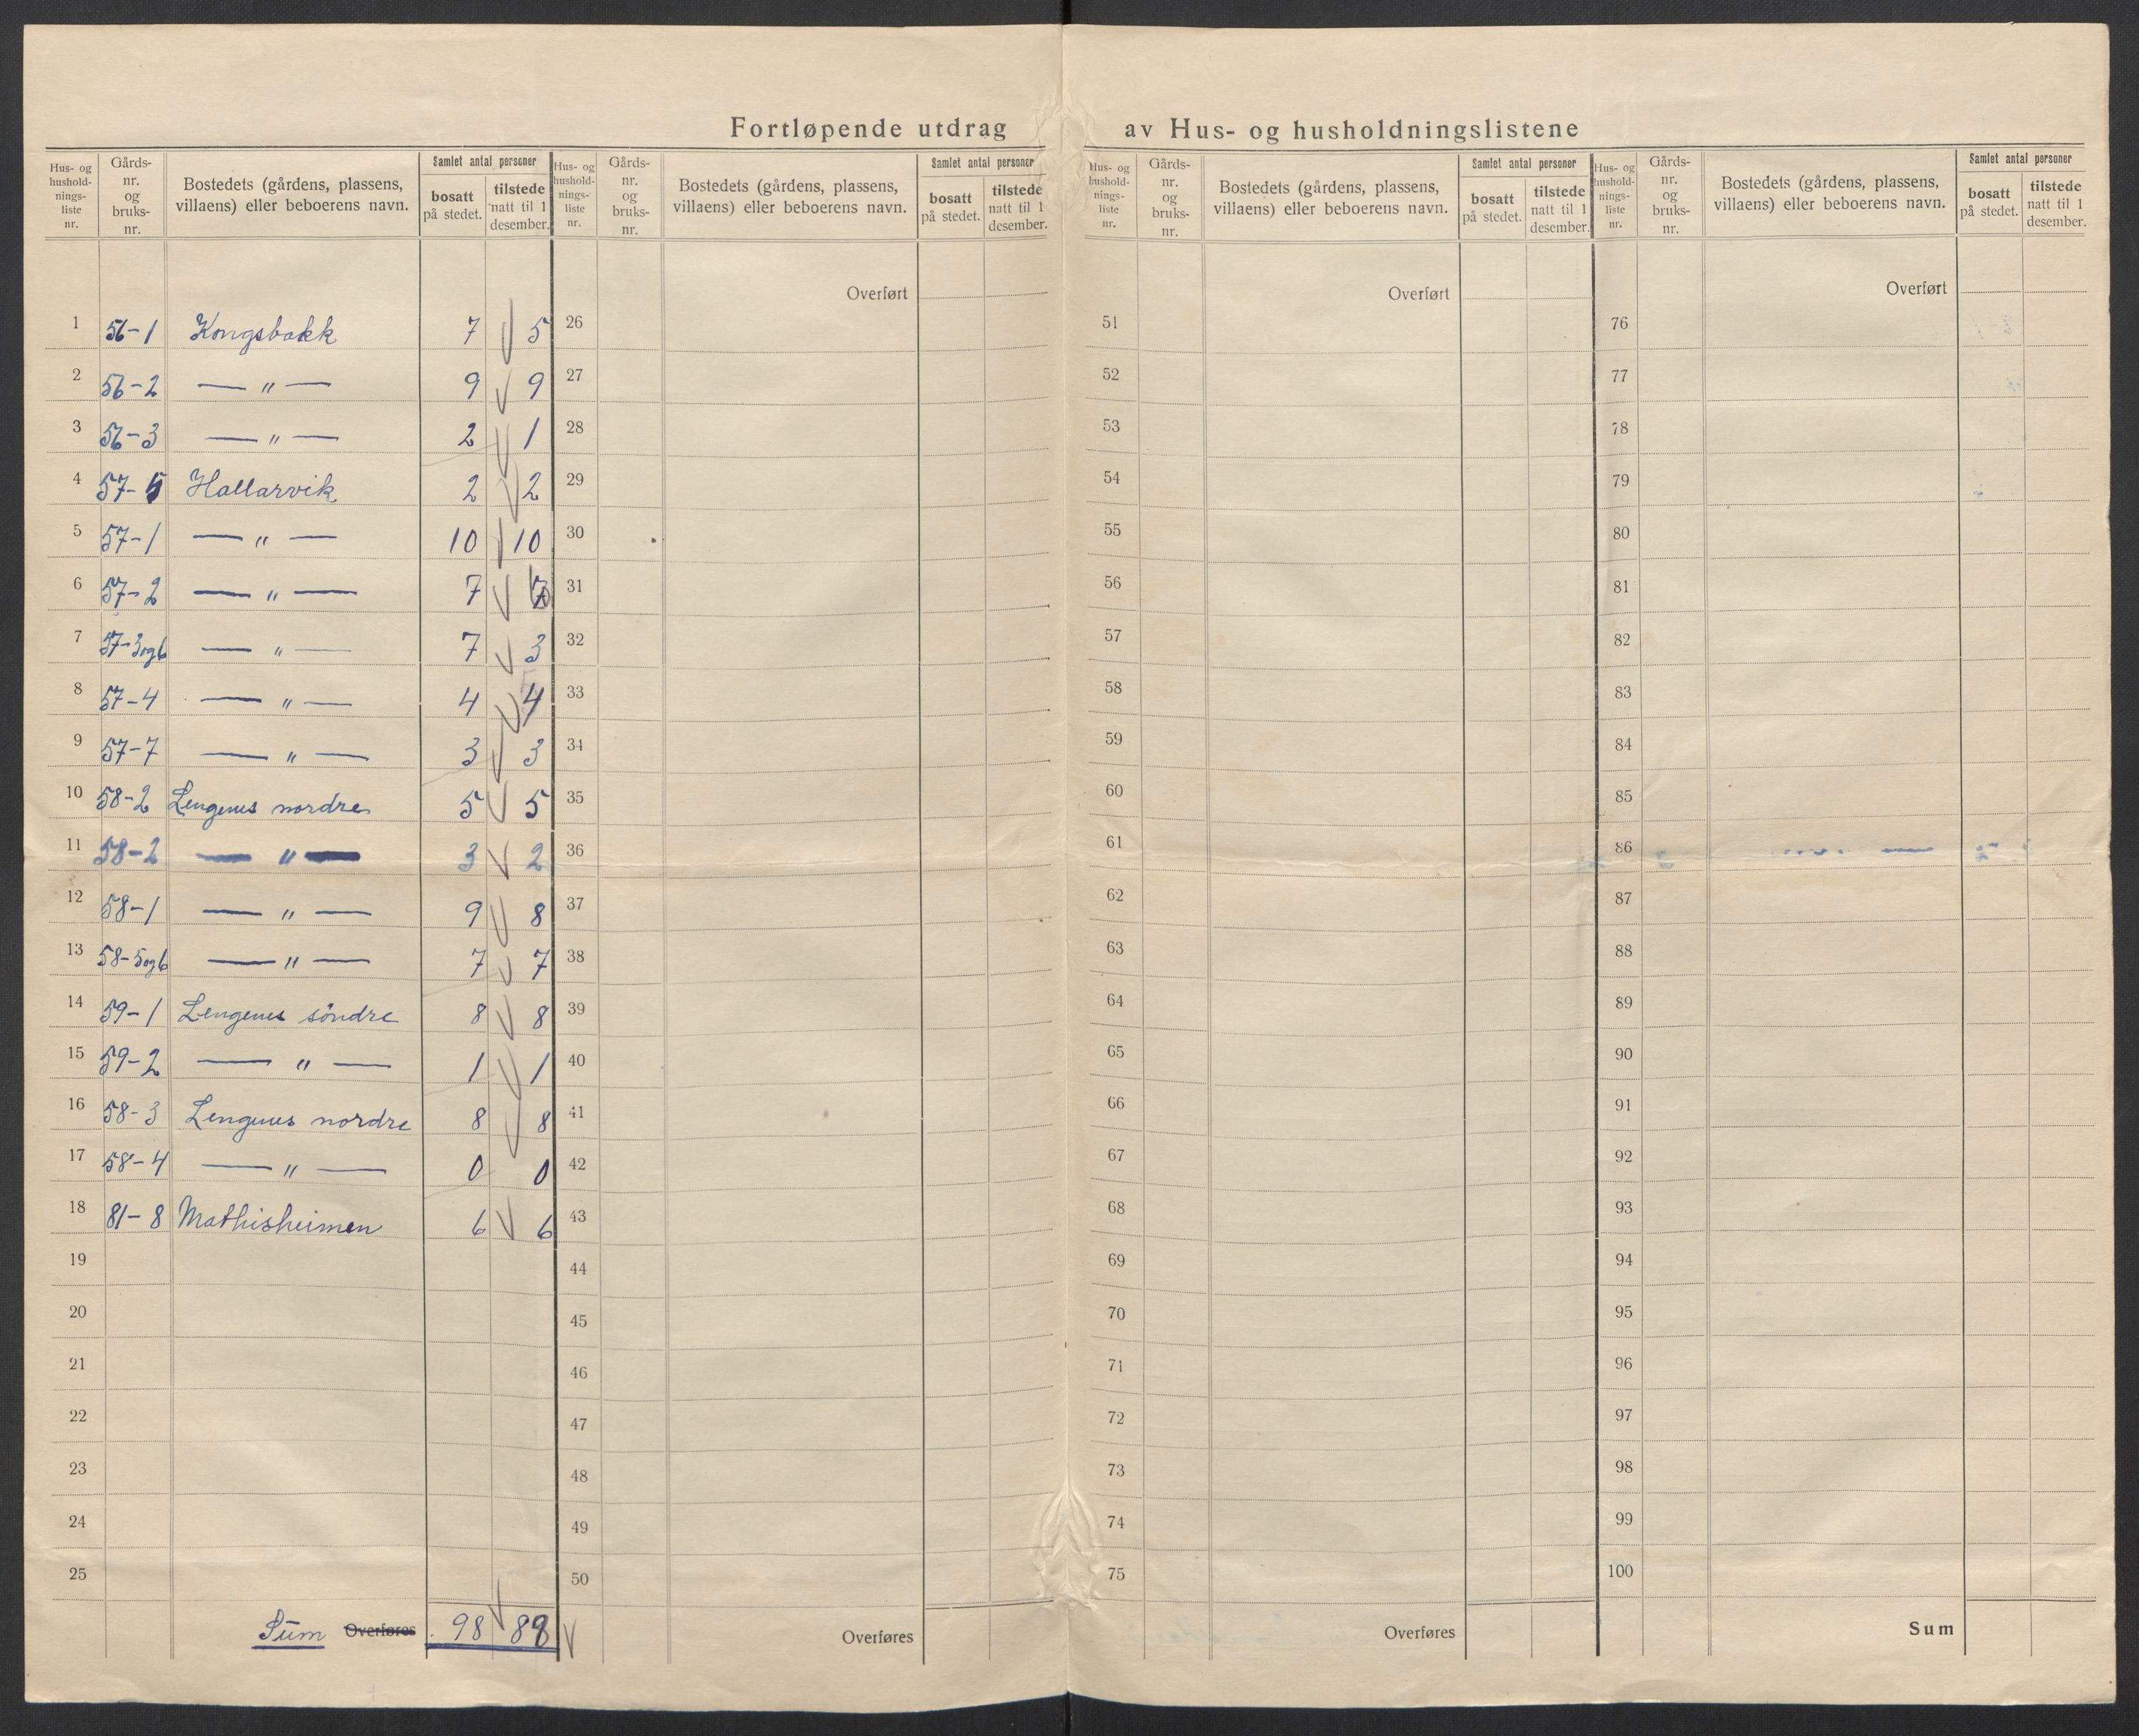 Fortløpende utdrag av Hus- og husholdningslistene
Hus- og hushold- nings- liste nr. | Gårds- nr. og bruks- nr. | Bostedets (gårdens, plassens, villaens) eller beboerens navn. | Samlet antal personer | bosatt på stedet. | tilstede natt til 1 desember.
Hus- og hushold- nings- liste nr. | Gårds- nr. og bruks- nr. | Bostedets (gårdens, plassens, villaens) eller beboerens navn. | Samlet antal personer | bosatt på stedet. | tilstede natt til 1 desember.
Hus- og hushold- nings- liste nr. | Gårds- nr. og bruks- nr. | Bostedets (gårdens, plassens, villaens) eller beboerens navn. | Samlet antal personer | bosatt på stedet. | tilstede natt til 1 desember.
Hus- og hushold- nings- liste nr. | Gårds- nr. og bruks- nr. | Bostedets (gårdens, plassens, villaens) eller beboerens navn. | Samlet antal personer | bosatt på stedet. | tilstede natt til 1 desember.
Overført Overført Overført
1 56-1 Kongsbakk 7 5 26 51 76
2 56-2 — " — 9 9 27 52 77
3 56-3 — " — 2 1 28 53 78
4 57-5 Hallarvik 2 2 29 54 79
5 57-1 — " — 10 10 30 55 80
6 57-2 — " — 7 31 56 81
7 57-3og6 — " — 7 3 32 57 82
8 57-4 — " — 4 4 33 58 83
9 57-7 — " — 3 3 34 59 84
10 58-2 Lengenes nordre 5 5 35 60 85
11 58-2 — " — 3 2 36 61 86
12 58-1 — " — 9 8 37 62 87
13 58-5og6 — " — 7 7 38 63 88
14 59-1 Lengenes söndre 8 8 39 64 89
15 59-2 — " — 1 1 40 65 90
16 58-3 Lengenes nordre 8 8 41 66 91
17 58-4 — " — 0 0 42 67 92
18 81-8 Mathisheimen 6 6 43 68 93
19 44 69 94
20 45 70 95
21 46 71 96
22 47 72 97
23 48 73 98
24 49 74 99
25 50 75 100
Sum Overføres 98 Overføres Overføres Sum